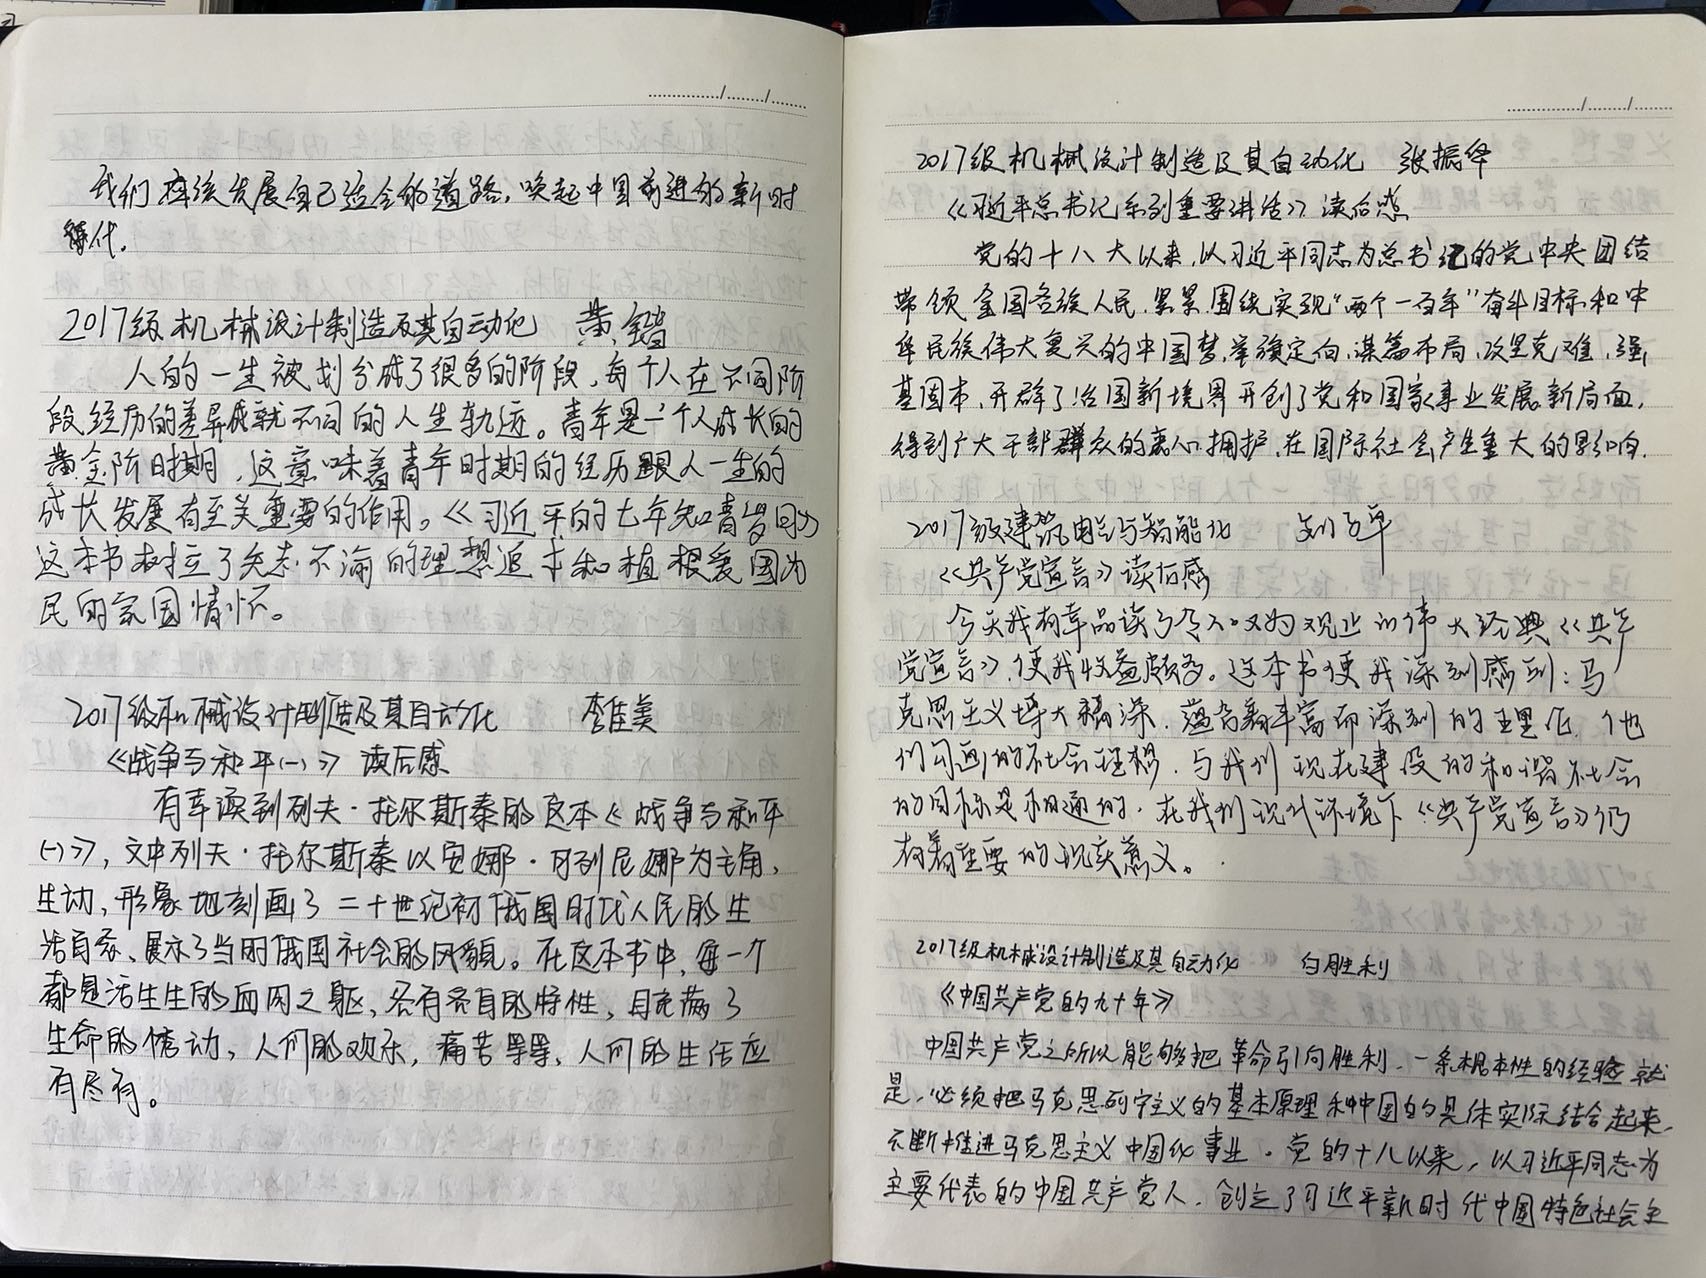 我们应该发展自己适合的道路,唤起中国前进的新时
代.
2017级机械设计制造及其自动化 黄锴
人的一生被划分成了很多的阶段,每个人在不同阶
段经历的差异成就不同的人生轨迹。青年是一个人成长的
黄金阶时期,这意味着青年时期的经历跟人一生的
成长发展有至关重要的作用。《习近平的七年知青岁月》
这本书树立了矢志不渝的理想追求和植根爱国为
民的家国情怀。
2017级机械设计制造及其自动化 李佳美
《战争与和平(一)》 读后感
有幸读到列夫·托尔斯泰的这本《战争与和平
(一)》,文中列夫·托尔斯泰以安娜·卡列尼娜为主角,
生动,形象地刻画了二十世纪初俄国时代人民的生
活百态、展示了当时俄国社会的风貌。在这本书中,每一个
都是活生生的血肉之躯,各有各自的特性,且充满了
生命的悸动,人们的欢乐,痛苦等等,人们的生活应
有尽有。
2017级机械设计制造及其自动化 张振华
《习近平总书记系列重要讲话》读后感
党的十八大以来,以习近平同志为总书记的党中央团结
带领全国各族人民,紧紧围绕实现“两个一百年”奋斗目标和中
华民族伟大复兴的中国梦,举旗定向,谋篇布局,攻坚克难,强
基固本,开辟了治国新境界开创了党和国家事业发展新局面,
得到广大干部群众的衷心拥护,在国际社会产生重大的影响.
2017级建筑电气与智能化 刘子卓
《共产党宣言》读后感
今天我有幸品读了令人叹为观止的伟大经典《共产
党宣言》,使我收益颇多。这本书使我深刻感到:马
克思主义博大精深,蕴含着丰富而深刻的哲理在,他
们勾画的社会理想,与我们现在建设的和谐社会
的目标是相通的,在我们现代环境下《共产党宣言》仍
有着重要的现实意义。
2017级机械设计制造及其自动化 白胜利
《中国共产党的九十年》
中国共产党之所以能够把革命引向胜利,一条根本性的经验就
是,必须把马克思列宁主义的基本原理和中国的具体实际结合起来,
不断推进马克思主义中国化事业。党的十八以来,以习近平同志为
主要代表的中国共产党人,创立了习近平新时代中国特色社会主